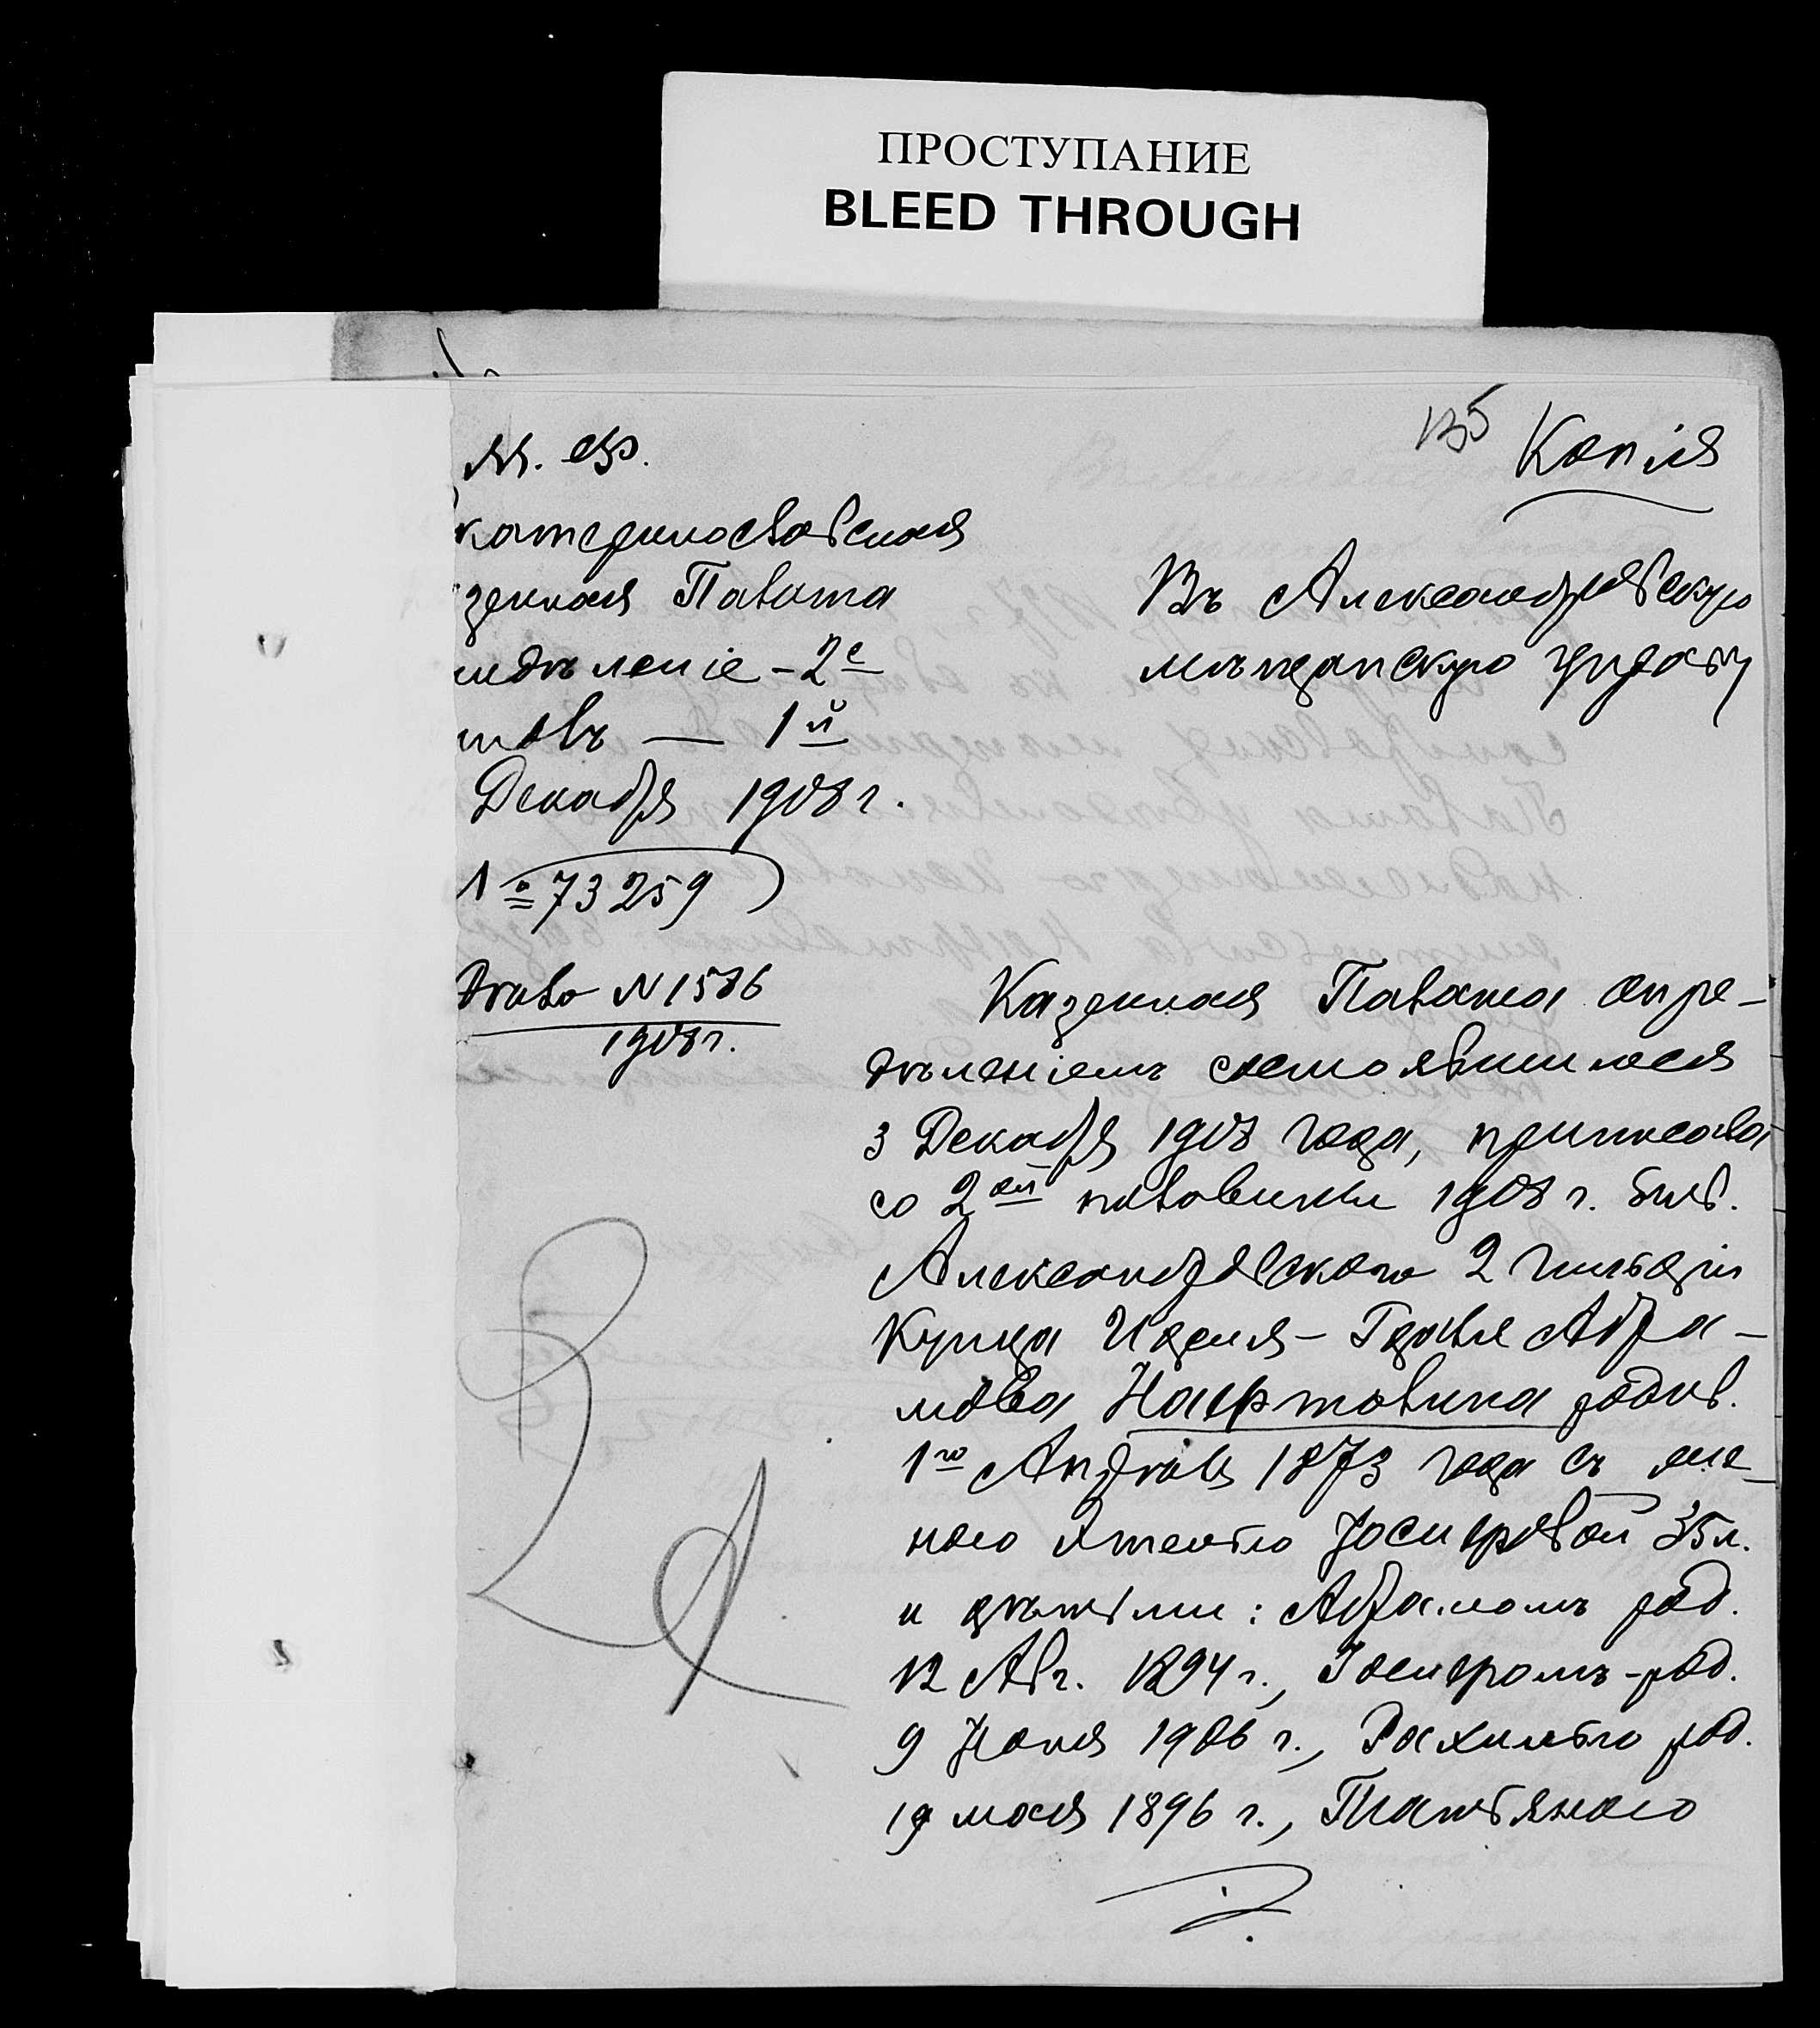 ПРОСТУПАНИЕ
BLEED THROUGH
135
Копія
М. Ф.
катеринославская
зенная Палата
тдѣленіе - 2е
толъ — 1й
Декабря 1908 г.
№ 73259
Дѣло № 1586
1908 г.
Въ Александровскую
мѣщанскую управу
Казенная Палата опре-
дѣленіемъ состоявшимся
3 Декабря 1908 года, причисла
со 2ой половины 1908 г. быв.
Александровскаго 2 гильдіи
Купца Иделя-Гдалье Абра-
мова Нафтолина родив.
1го Апрѣля 1873 года съ же-
ною Ентелью Іосифовой 35 л.
и дѣтьми: Абрамомъ род.
12 Авг. 1894 г., Іосифомъ - род.
9 Іюня 1906 г., Рахилью род.
19 мая 1896 г., Татьяною